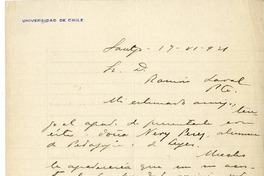 UNIVERSIDAD DE CHILE
Santgo - 17-VI-924
Sr. D.
Ramón Laval
Pte.
Mi estimado amigo,
ten
go el agrado de presentarle con
esta a doña Nery Rey, alumna
de Pedagogía y de Leyes.
Mucho
le agradecería que en su